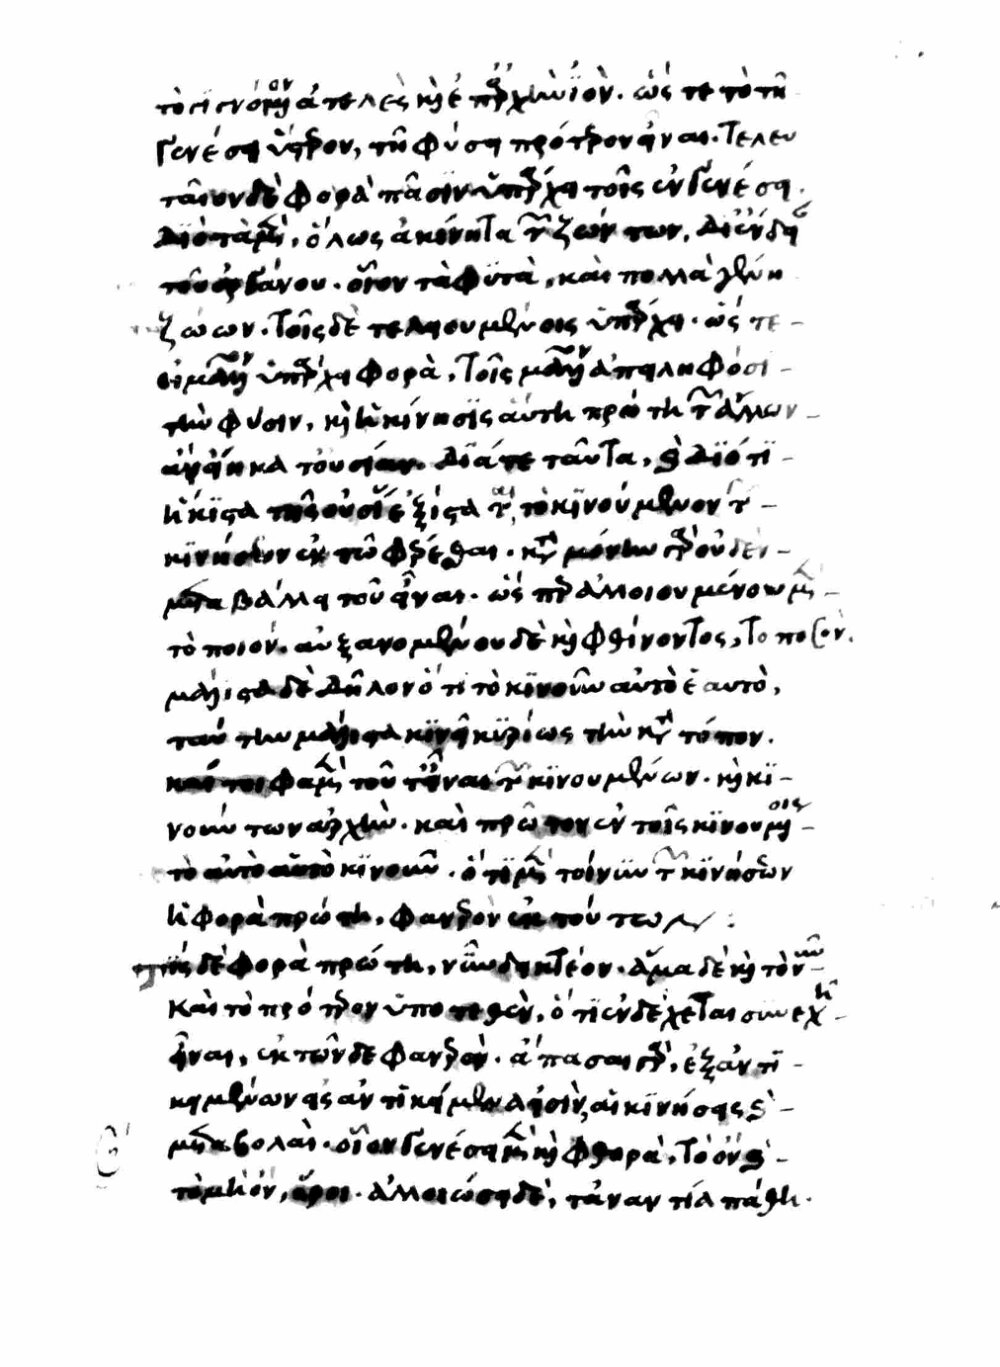 τὸ γινόμενον ἀτελὲς καὶ ἐπ' ἀρχὴν ἰόν. ὥστε τὸ τῆ
γενέσει ὕστερον, τῆ φύσει πρότερον εἶναι. Τελευ
ταῖον δὲ φορὰ πᾶσιν ὑπάρχει τοῖς ἐν γενέσει.
διὸ τὰ μὲν, ὅλως ἀκίνητα τῶν ζώντων, δι' ἔνδειαν
τοῦ ὀργάνου. οἷον τὰ φυτὰ, καὶ πολλὰ γένη
ζώων. Τοῖς δὲ τελειουμένοις ὑπάρχει. ὥστε
εἰ μᾶλλον ὑπάρχει φορὰ, τοῖς μᾶλλον ἀπειληφόσι
τὴν φύσιν, καὶ ἡ κίνησις αὕτη πρώτη τῶν ἄλλων
ἂν εἴη κατ' οὐσίαν. διά τε ταῦτα, καὶ διότι
ἥκιστα τῆς οὐσίας ἐξίσταται τὸ κινούμενον τῶν
κινήσεων ἐν τῶ φέρεσθαι. κατὰ μόνην γὰρ οὐδὲν
μεταβάλλει τοῦ εἶναι. ὥσπερ ἀλλοιουμένου μὲν
τὸ ποιόν. αὐξανομένου δὲ καὶ φθίνοντος, τὸ ποσόν.
μάλιστα δὲ δῆλον ὅτι τὸ κινοῦν αὐτὸ ἑαυτὸ,
ταύτην μάλιστα κινεῖ κυρίως τὴν κατὰ τόπον.
καί τοι φαμὲν τοῦτ' εἶναι τῶν κινουμένων. καὶ κι
νούντων ἀρχὴν. καὶ πρῶτον ἐν τοῖς κινουμένοις
τὸ αὐτὸ αὑτὸ κινοῦν. ὅτι μὲν τοίνυν τῶν κινήσεων
ἡ φορὰ πρώτη, φανερὸν ἐκ τούτων:
τίς δὲ φορὰ πρώτη, νῦν δεικτέον. ἅμα δὲ καὶ τὸ νῦν
καὶ τὸ πρότερον ὑποτεθὲν, ὅτι ἐνδέχεταί συνεχῆ
εἶναι, ἐκ τῶνδε φανερὸν. ἅπασαι γὰρ, ἐξ ἀντι
κειμένων εἰς ἀντικείμενά εἰσὶν, αἱ κινήσεις καὶ
μεταβολαὶ. οἷον γενέσει μὲν καὶ φθορᾶ, τὸ ὂν καὶ
τὸ μὴ ὂν, ὅροι. ἀλλοιώσει δὲ, τἀναντία πάθη.